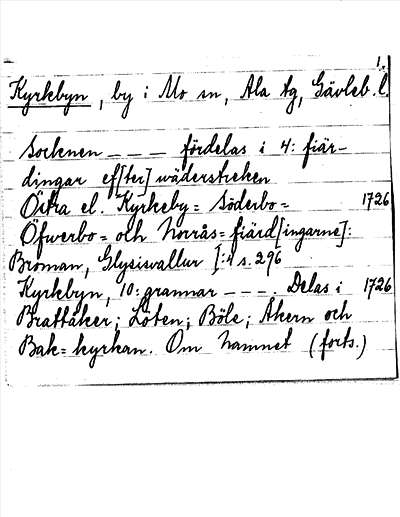 1.
Kyrkebyn, by i Mo sn, Ala tg, Gävleb. l.
Socknen — — — fördelas i 4: fiär-
dingar ef[ter] wäderstreken
Östra el. Kyrkeby= Söderbo= 1726
Öfwerbo= och Norrås=fiärd[ingarne]:
Broman, Glysisvallur I:4 s. 296
Kyrkbyn, 10: grannar — — —. Delas i 1726
Brattåker; Löten; Böle; Åkern och
Bak=kyrkan. Om Namnet (forts.)